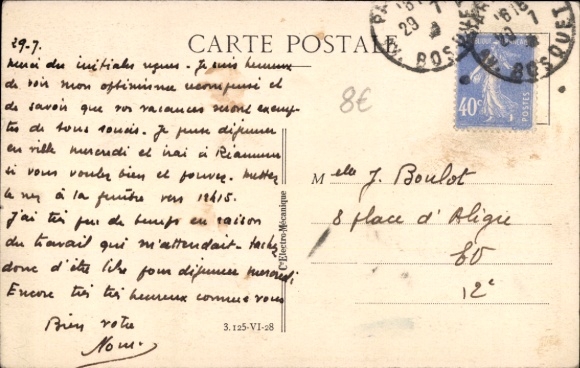 CARTE POSTALE
29-7.
Merci des initiales reçues. Je suis heureux
de voir mon optimisme récompensé et
de savoir que vos vacances seront exemp-
tes de tous soucis. Je puis déjeuner
en ville mercredi et irai à
si vous voulez bien et pouvez. Mettez
le nez à la fenêtre vers 12h15.
J'ai très peu de temps en raison
du travail qui m'attendait. Tâchez
donc d'être libre pour déjeuner mercredi
Encore très très heureux comme vous
Bien votre
8€
Melle J. Boulot
8 place d'Aligre
EV
12e
Cie Electro-Mécanique
3.125-VI-28
REPUBLIQUE FRANÇAISE
40c
POSTES
29 7
AV. BOSQUET
29 7
AV. BOSQUET